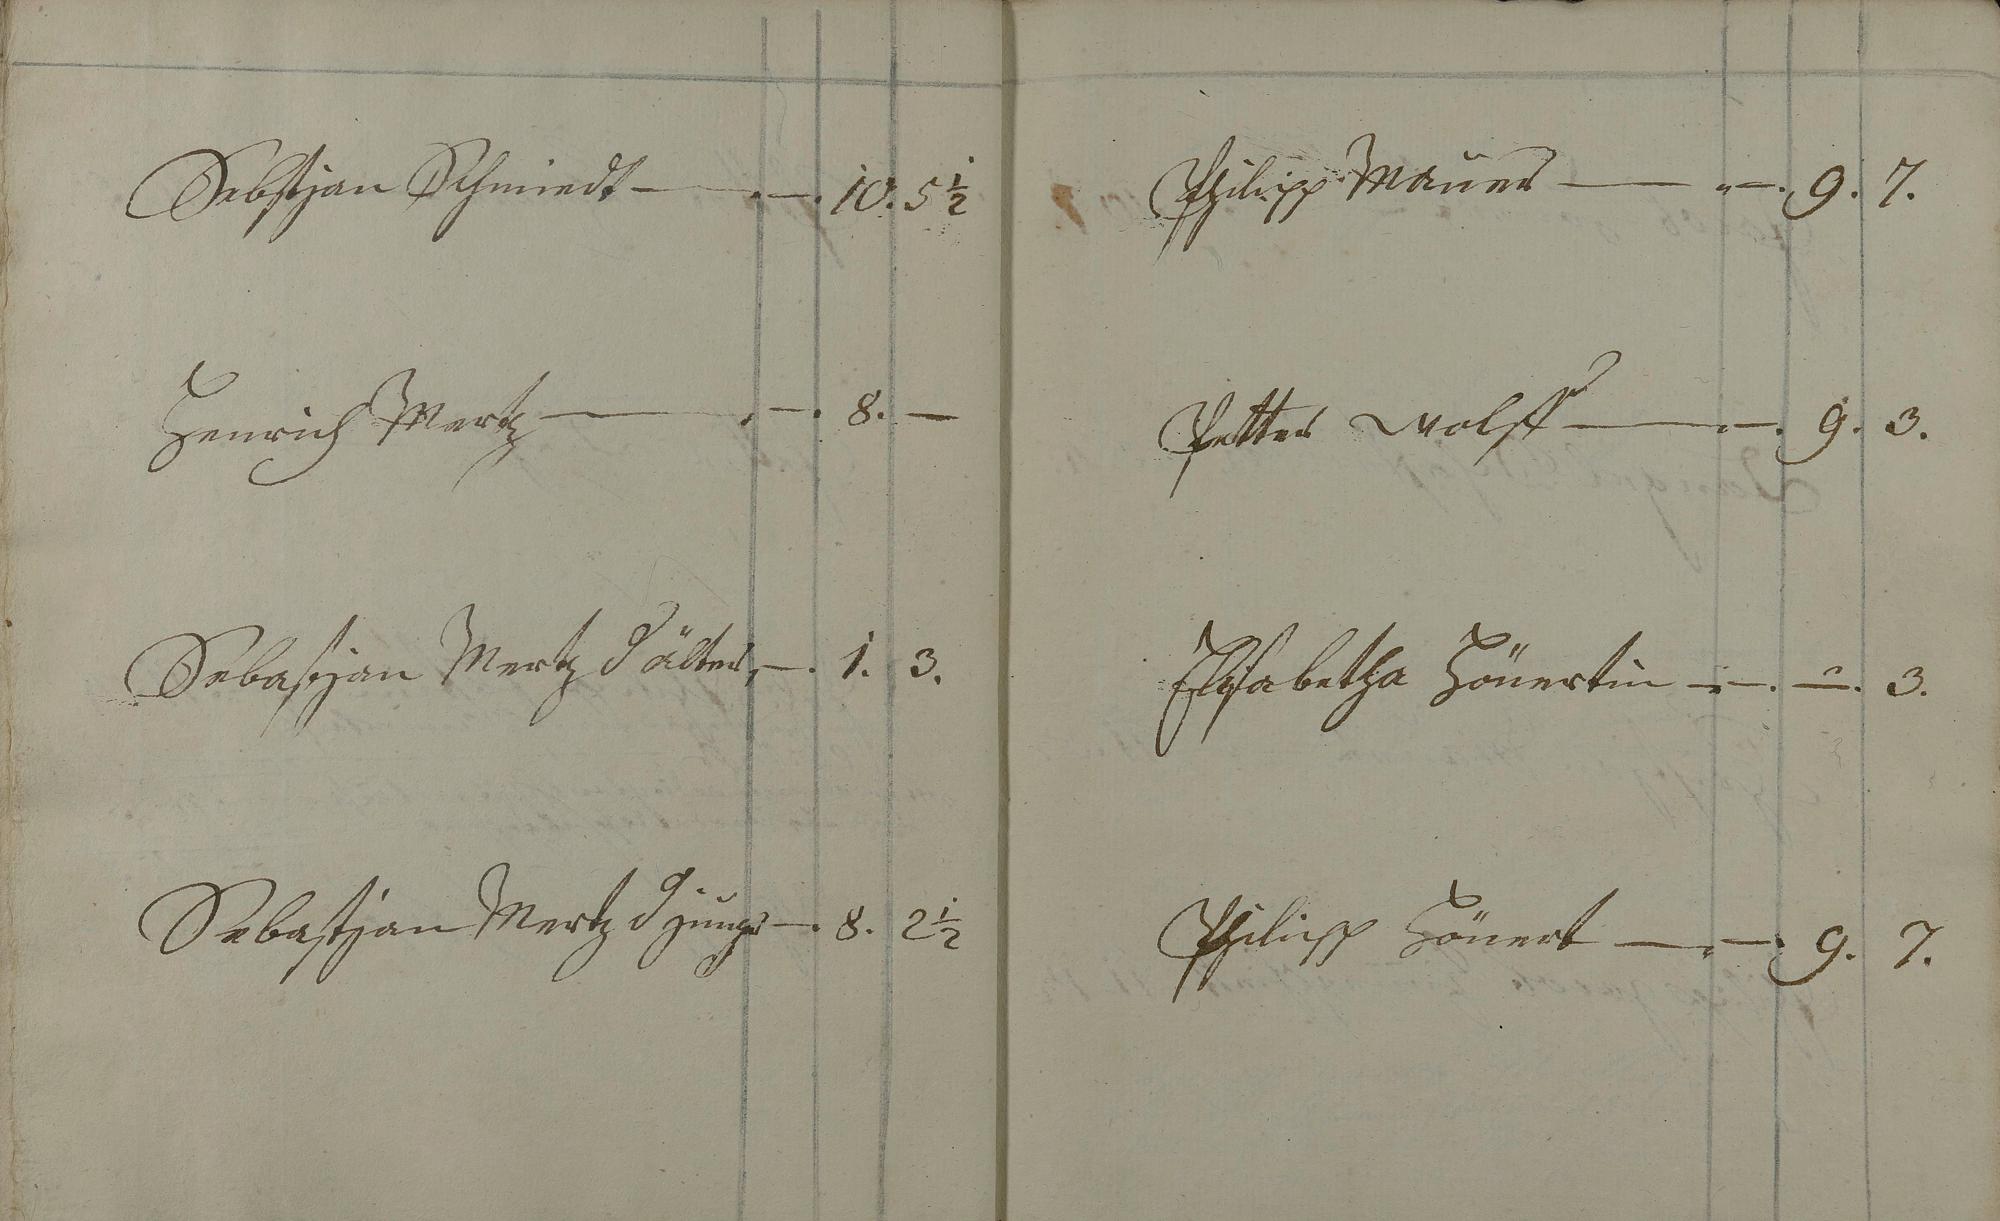 Sebstjan Schmiedt — . — . 10. 5 ½
Henrich Mertz — . — . 8. —
Sebastjan Mertz d älter, — . 1. 3.
Sebastjan Mertz d jüngr — . 8. 2 ½
Philipp Mauer — " — . 9. 7.
Petter Wolff — " — . 9. 3.
Elisabetha Hönertin — " — . — . 3.
Philipp Hönert — " — . 9. 7.